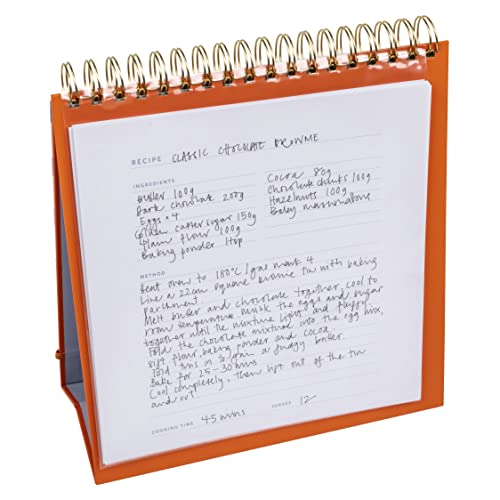 RECIPE CLASSIC CHOCOLATE BROWNIE
INGREDIENTS
Butter 100g
Dark chocolate 200g
Eggs x 4
Golden caster sugar 150g
Plain flour 100g
Baking powder 1tsp
Cocoa 80g
Chocolate chunks 100g
Hazelnuts 100g
Baby marshmallows
METHOD
Heat oven to 180°C / gas mark 4
Line a 22cm square brownie tin with baking
parchment.
Melt butter and chocolate together, cool to
room temperature. Whisk the eggs and sugar
together until the mixture light and fluffy.
Fold the chocolate mixture into the egg mix,
sift flour, baking powder and cocoa.
Fold this in to gain a fudgy batter.
Bake for 25-30 mins
Cool completely, then lift out of the tin
and cut.
COOKING TIME 45 mins SERVES 12